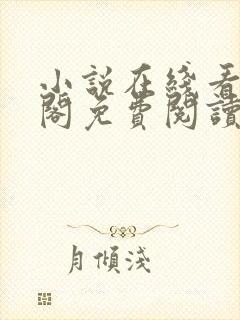 小説在綫看
閣免費閱讀
月傾淺